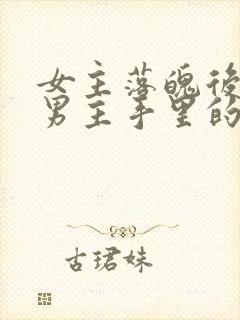 女主落魄後
男主手里的
古珺妹